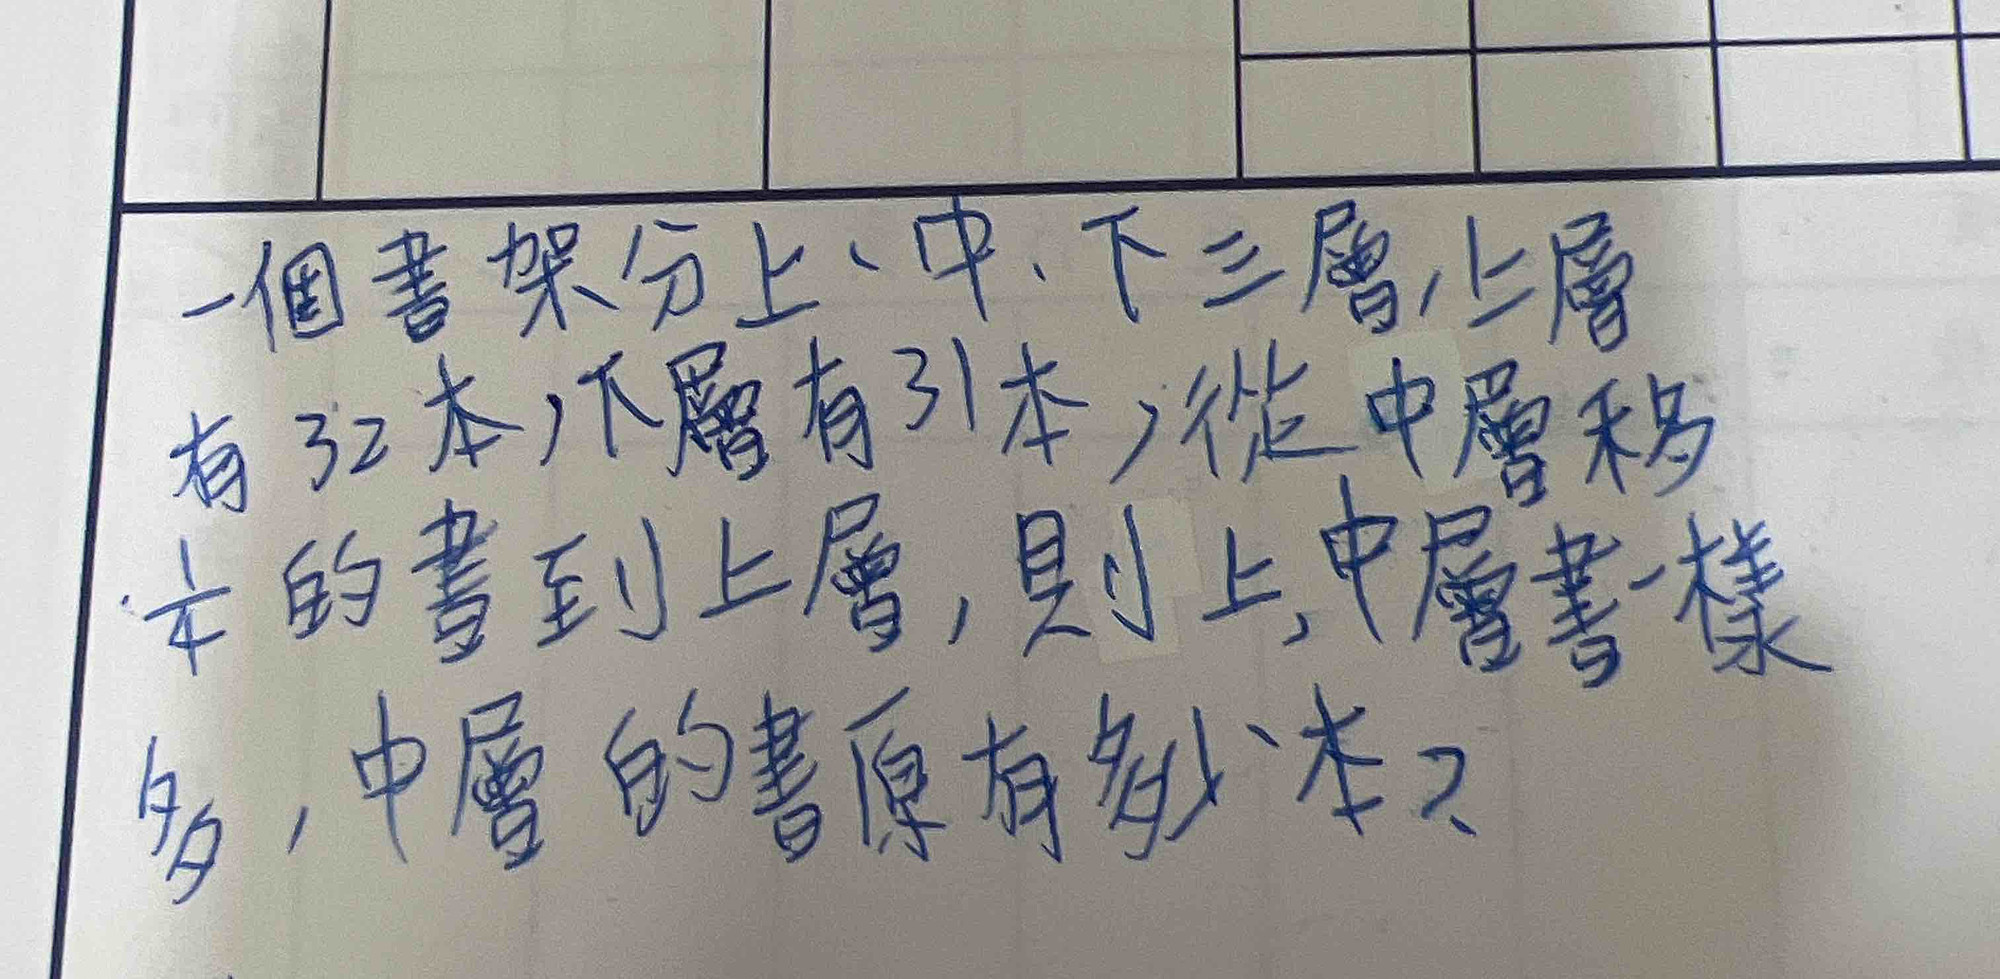 一個書架分上、中、下三層,上層
有32本,下層有31本,從中層移
1/4的書到上層,則上,中層書一樣
多,中層的書原有多少本?